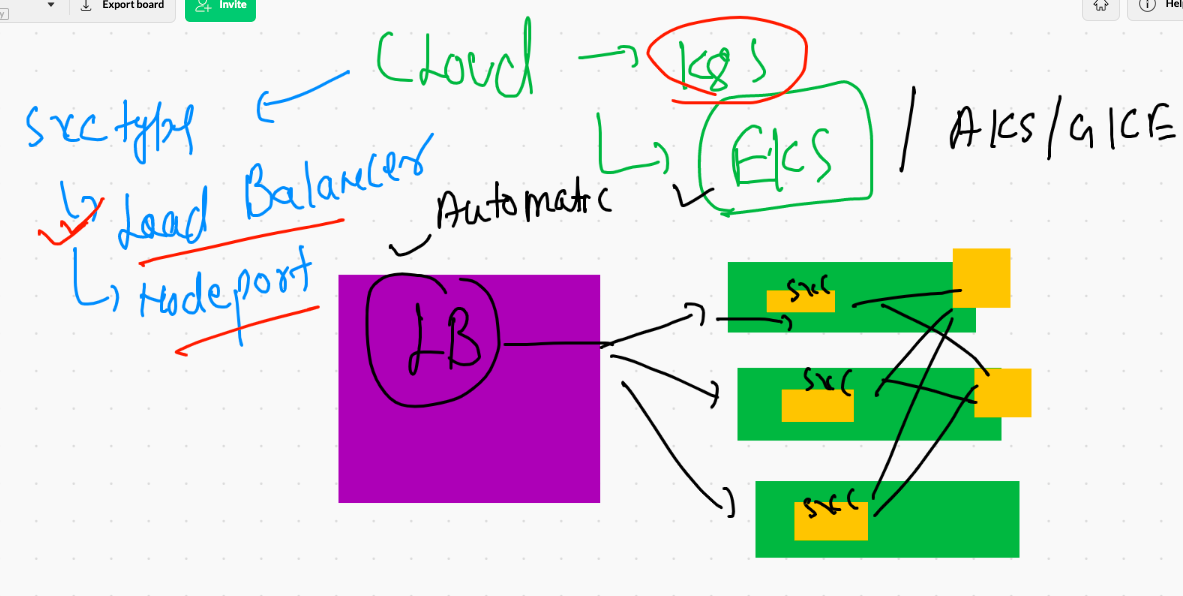 Export board
Invite
Help
Cloud → K8S
EKS / AKS/GKE
svc type
Load Balancer
Nodeport
Automatic
LB
svc
svc
svc